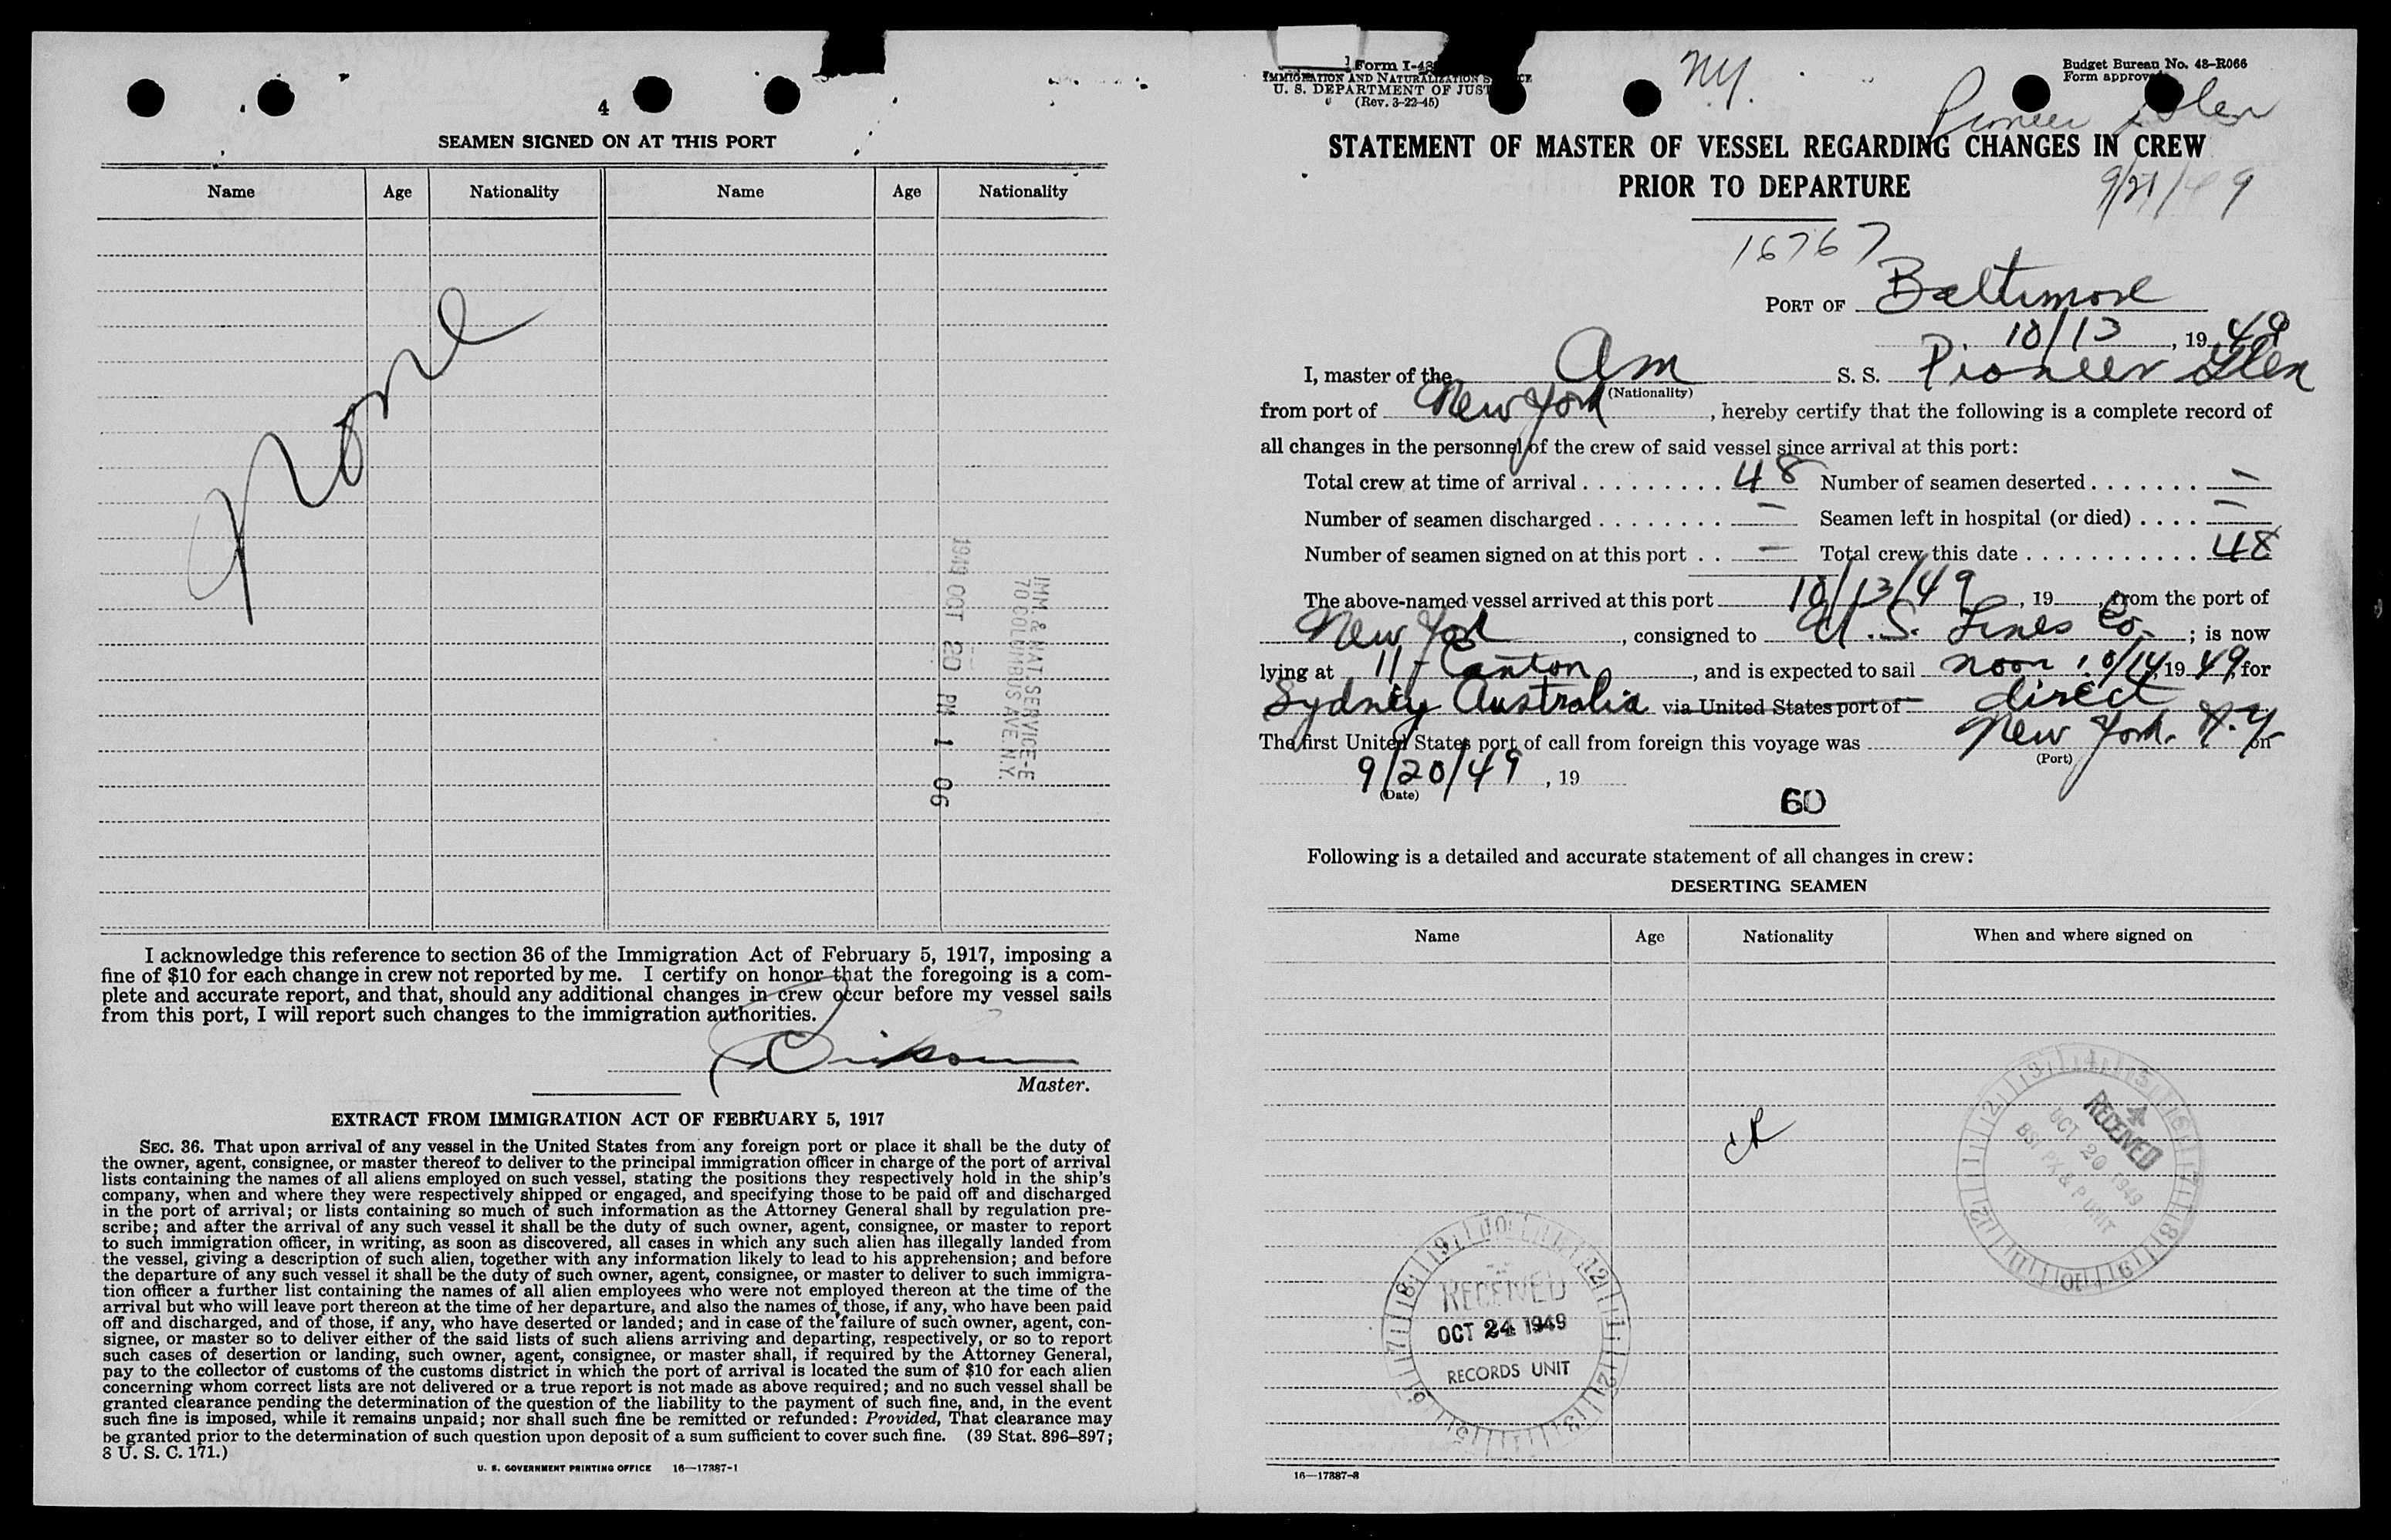 4
SEAMEN SIGNED ON AT THIS PORT
Name Age Nationality Name Age Nationality
None
IMM. & NAT. SERVICE-E
70 COLUMBUS AVE. N.Y.
1949 OCT 20 PM 1 06
I acknowledge this reference to section 36 of the Immigration Act of February 5, 1917, imposing a
fine of $10 for each change in crew not reported by me. I certify on honor that the foregoing is a com-
plete and accurate report, and that, should any additional changes in crew occur before my vessel sails
from this port, I will report such changes to the immigration authorities.
Master.
EXTRACT FROM IMMIGRATION ACT OF FEBRUARY 5, 1917
SEC. 36. That upon arrival of any vessel in the United States from any foreign port or place it shall be the duty of
the owner, agent, consignee, or master thereof to deliver to the principal immigration officer in charge of the port of arrival
lists containing the names of all aliens employed on such vessel, stating the positions they respectively hold in the ship's
company, when and where they were respectively shipped or engaged, and specifying those to be paid off and discharged
in the port of arrival; or lists containing so much of such information as the Attorney General shall by regulation pre-
scribe; and after the arrival of any such vessel it shall be the duty of such owner, agent, consignee, or master to report
to such immigration officer, in writing, as soon as discovered, all cases in which any such alien has illegally landed from
the vessel, giving a description of such alien, together with any information likely to lead to his apprehension; and before
the departure of any such vessel it shall be the duty of such owner, agent, consignee, or master to deliver to such immigra-
tion officer a further list containing the names of all alien employees who were not employed thereon at the time of the
arrival but who will leave port thereon at the time of her departure, and also the names of those, if any, who have been paid
off and discharged, and of those, if any, who have deserted or landed; and in case of the failure of such owner, agent, con-
signee, or master so to deliver either of the said lists of such aliens arriving and departing, respectively, or so to report
such cases of desertion or landing, such owner, agent, consignee, or master shall, if required by the Attorney General,
pay to the collector of customs of the customs district in which the port of arrival is located the sum of $10 for each alien
concerning whom correct lists are not delivered or a true report is not made as above required; and no such vessel shall be
granted clearance pending the determination of the question of the liability to the payment of such fine, and, in the event
such fine is imposed, while it remains unpaid; nor shall such fine be remitted or refunded: Provided, That clearance may
be granted prior to the determination of such question upon deposit of a sum sufficient to cover such fine. (39 Stat. 896-897;
8 U. S. C. 171.)
U. S. GOVERNMENT PRINTING OFFICE 16—17387-1
Form I-48
IMMIGRATION AND NATURALIZATION
U. S. DEPARTMENT OF JUST
(Rev. 3-22-45)
NY.
Budget Bureau No. 43-R066
Form approv
Pioneer Glen
STATEMENT OF MASTER OF VESSEL REGARDING CHANGES IN CREW
PRIOR TO DEPARTURE
9/21/49
16767
PORT OF Baltimore
10/13, 1949
I, master of the Am S. S. Pioneer Glen
(Nationality)
from port of New York, hereby certify that the following is a complete record of
all changes in the personnel of the crew of said vessel since arrival at this port:
Total crew at time of arrival . . . . . . . . . 48 Number of seamen deserted . . . . . . . —
Number of seamen discharged . . . . . . . . — Seamen left in hospital (or died) . . . . —
Number of seamen signed on at this port . . — Total crew this date . . . . . . . . . . . 48
The above-named vessel arrived at this port 10/13/49, 19 , from the port of
New York, consigned to U.S. Lines Co.; is now
lying at 11 - Canton, and is expected to sail noon 10/14, 1949, for
Sydney Australia via United States port of direct
The first United States port of call from foreign this voyage was New York. N.Y. on
(Port)
9/20/49, 19
(Date)
60
Following is a detailed and accurate statement of all changes in crew:
DESERTING SEAMEN
Name Age Nationality When and where signed on
RECEIVED
OCT 20 1949
RECEIVED
OCT 24 1949
RECORDS UNIT
16—17387-3